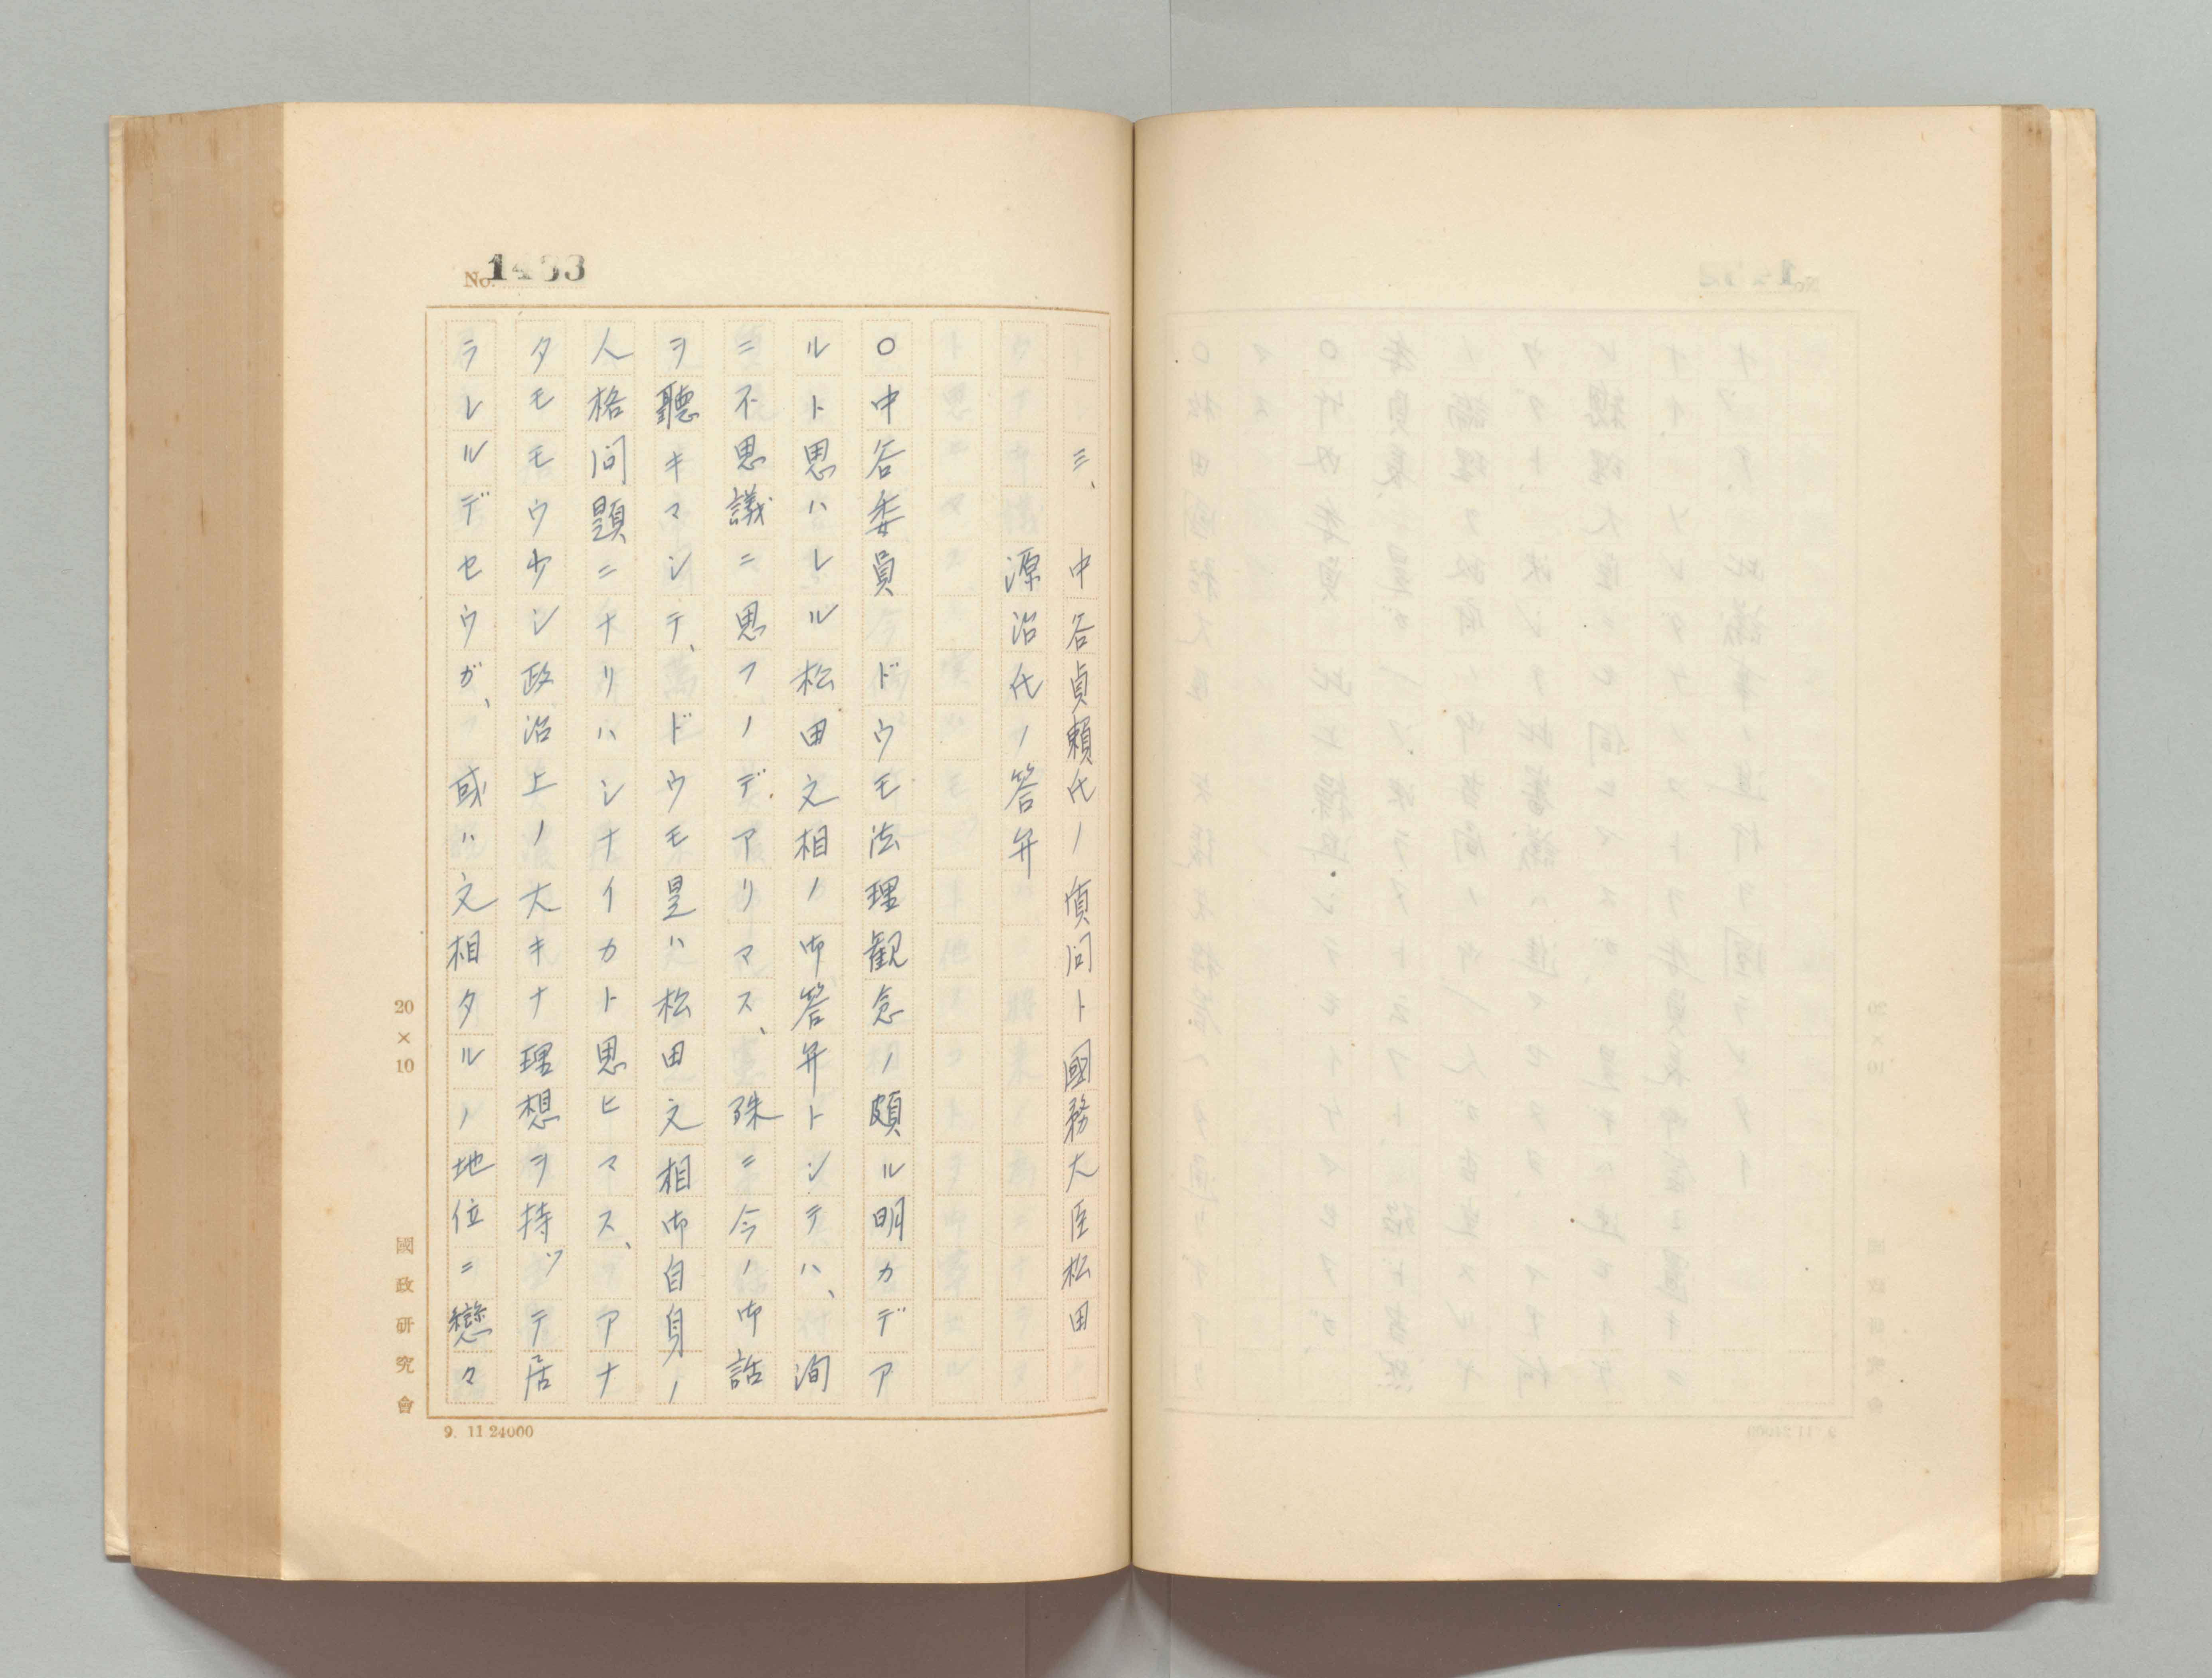 No. 1433
三、中谷貞頼氏ノ質問ト國務大臣松田
源治氏ノ答弁
〇中谷委員 ドウモ法理観念ノ頗ル明カデア
ルト思ハレル松田文相ノ御答弁トシテハ、洵
ニ不思議ニ思フノデアリマス、殊ニ今ノ御話
ヲ聽キマシテ、ドウモ是ハ松田文相御自身ノ
人格問題ニナリハシナイカト思ヒマス、アナ
タモモウ少シ政治上ノ大キナ理想ヲ持ッテ居
ラレルデセウガ、或ハ文相タルノ地位ニ戀々
20×10
國政研究會
9. 11 24000